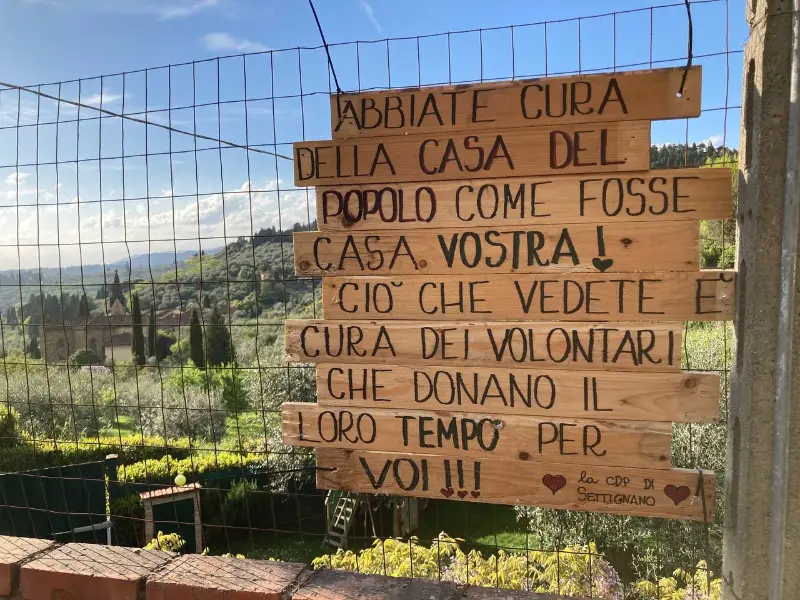 ABBIATE CURA
DELLA CASA DEL
POPOLO COME FOSSE
CASA VOSTRA!
CIO' CHE VEDETE E'
CURA DEI VOLONTARI
CHE DONANO IL
LORO TEMPO PER
VOI!!!
la CDP DI
SETTIGNANO